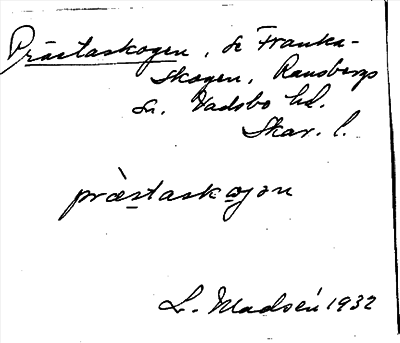 Prästaskogen, se Franka-
skogen, Ransbergs
sn. Vadsbo hd.
Skar. l.
præ̀staskoğən
L. Madsén 1932